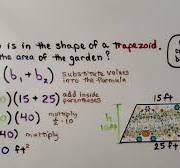 is in the shape of a trapezoid.
the area of the garden?
(b₁ + b₂) substitute values into the formula
)(15 + 25) add inside parentheses
)(40) multiply ½ · 10
40) multiply
0 ft²
15 ft
h
25 ft